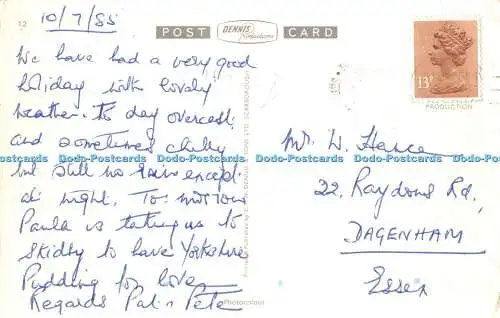 12
10/7/85
POST DENNIS Productions CARD
We have had a very good
holiday with lovely
weather. To day overcast
and sometimes chilly
but still no rain except
at night. To morrow
Paula is taking us to
Skidby to have Yorkshire
Pudding for love
Regards Pat & Pete
13P
PRODUCTION
Mr W.
22, Raydons Rd,
DAGENHAM
Essex
Dodo-Postcards Dodo-Postcards Dodo-Postcards Dodo-Postcards Dodo-Postcards Dodo-Postcards
Photocolour